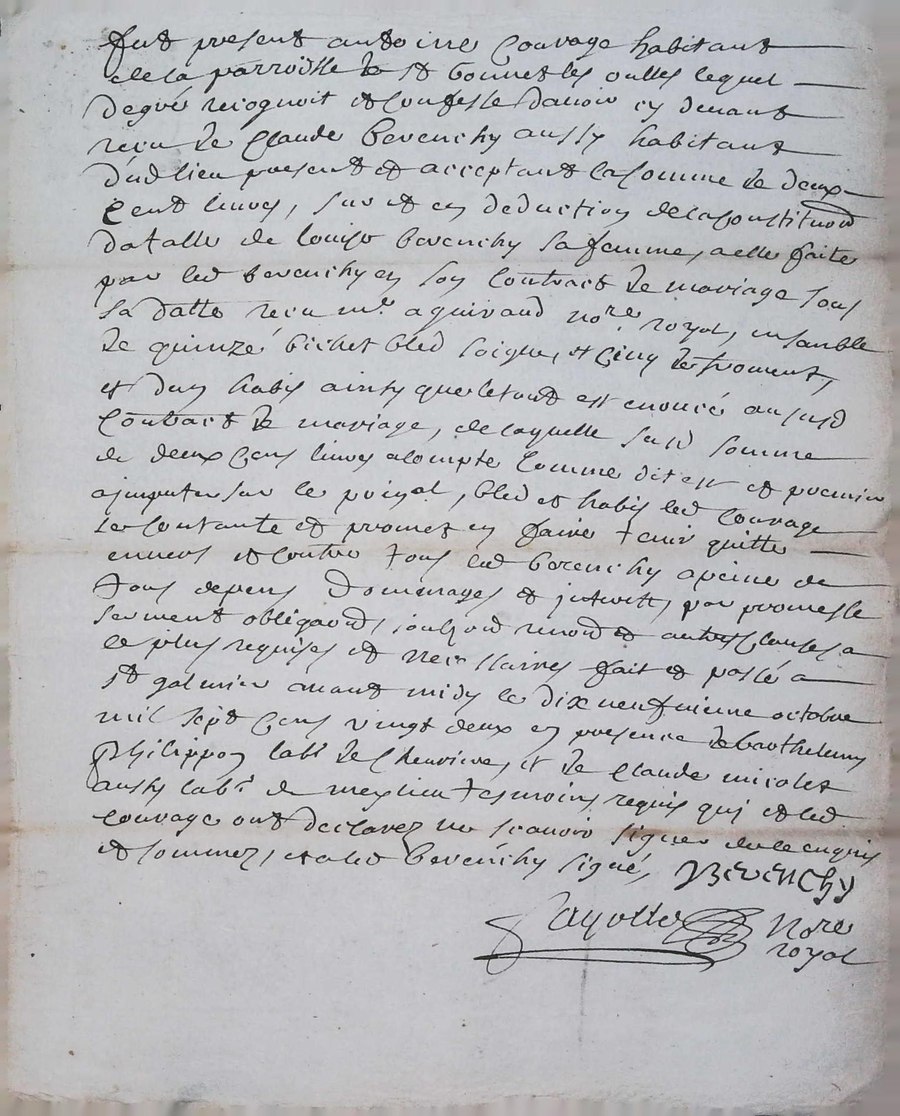 fut present antoine Couvage habitant
de la parroisse de st bonnet les oulles lequel
de gré recognoit et confesse davoir cy devant
receu de Claude Berenchy aussy habitant
dud lieu present et acceptant la somme de deux
Cent livres, sur et en deduction de la Constituon
dotalle de Louise berenchy sa femme, a elle faite
par led berenchy en son Contract de mariage sous
sa datte receu me aguiraud nore royal, ensemble
de quinze bichet bled soigle, et cinq de froment,
et dun habis ainsy que le tout est enoncé aususd
Contract de mariage, de laquelle susd somme
de deux Cens livres acompte Comme dit est et premier
a imputer sur le pnpal, bled et habis led Couvage
se contante et promet en faire tenir quitte
envers et contre tous led berenchy a peine de
tous depens dommages et interests, par promesse
serment obligaon, soubzon renon et autres clauses a
ce plus requises et necessaires fait et passé a
st galmier avant midy le dix neufvieme octobre
mil sept Cens vingt deux en presence de barthelemy
philippon labr de Chevrieres, et de Claude micolet
aussy labr de meylieu tesmoins requis qui et led
Couvage ont declarez ne scavoir signer de ce enquis
et sommez, et a led berenchy signé, Berenchy
nore
royal